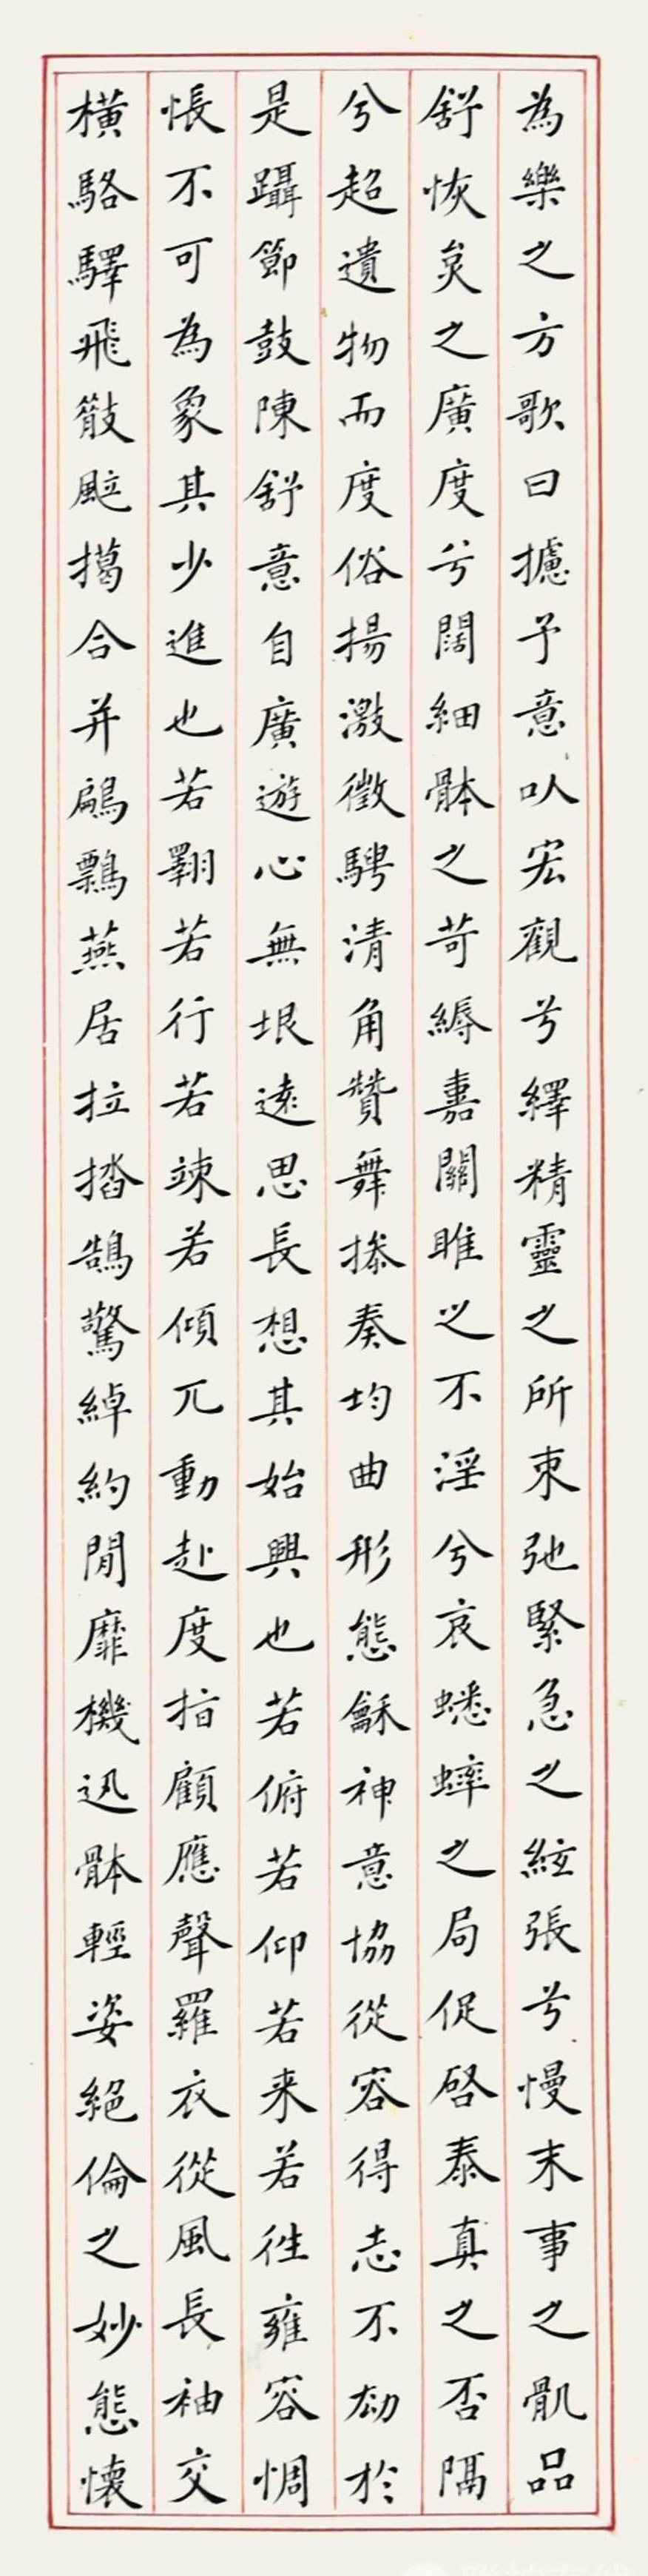 為樂之方歌曰攄予意㕥宏觀兮繹精靈之所束弛緊急之絃張兮慢末事之骩品
舒恢炱之廣度兮闊細骵之苛縟嘉關雎之不淫兮哀蟋蟀之局促啓泰真之否隔
兮超遺物而度俗揚激徵騁清角贊舞摻奏均曲形態龢神意協從容得志不劾於
是躡節鼓陳舒意自廣遊心無垠遠思長想其始興也若俯若仰若来若徃雍容惆
悵不可為象其少進也若翾若行若竦若傾兀動赴度指顧應聲羅衣從風長袖交
橫駱驛飛散颯擖合并鶣䴩燕居拉㧺鵠驚綽約閒靡機迅骵輕姿絕倫之妙態懷